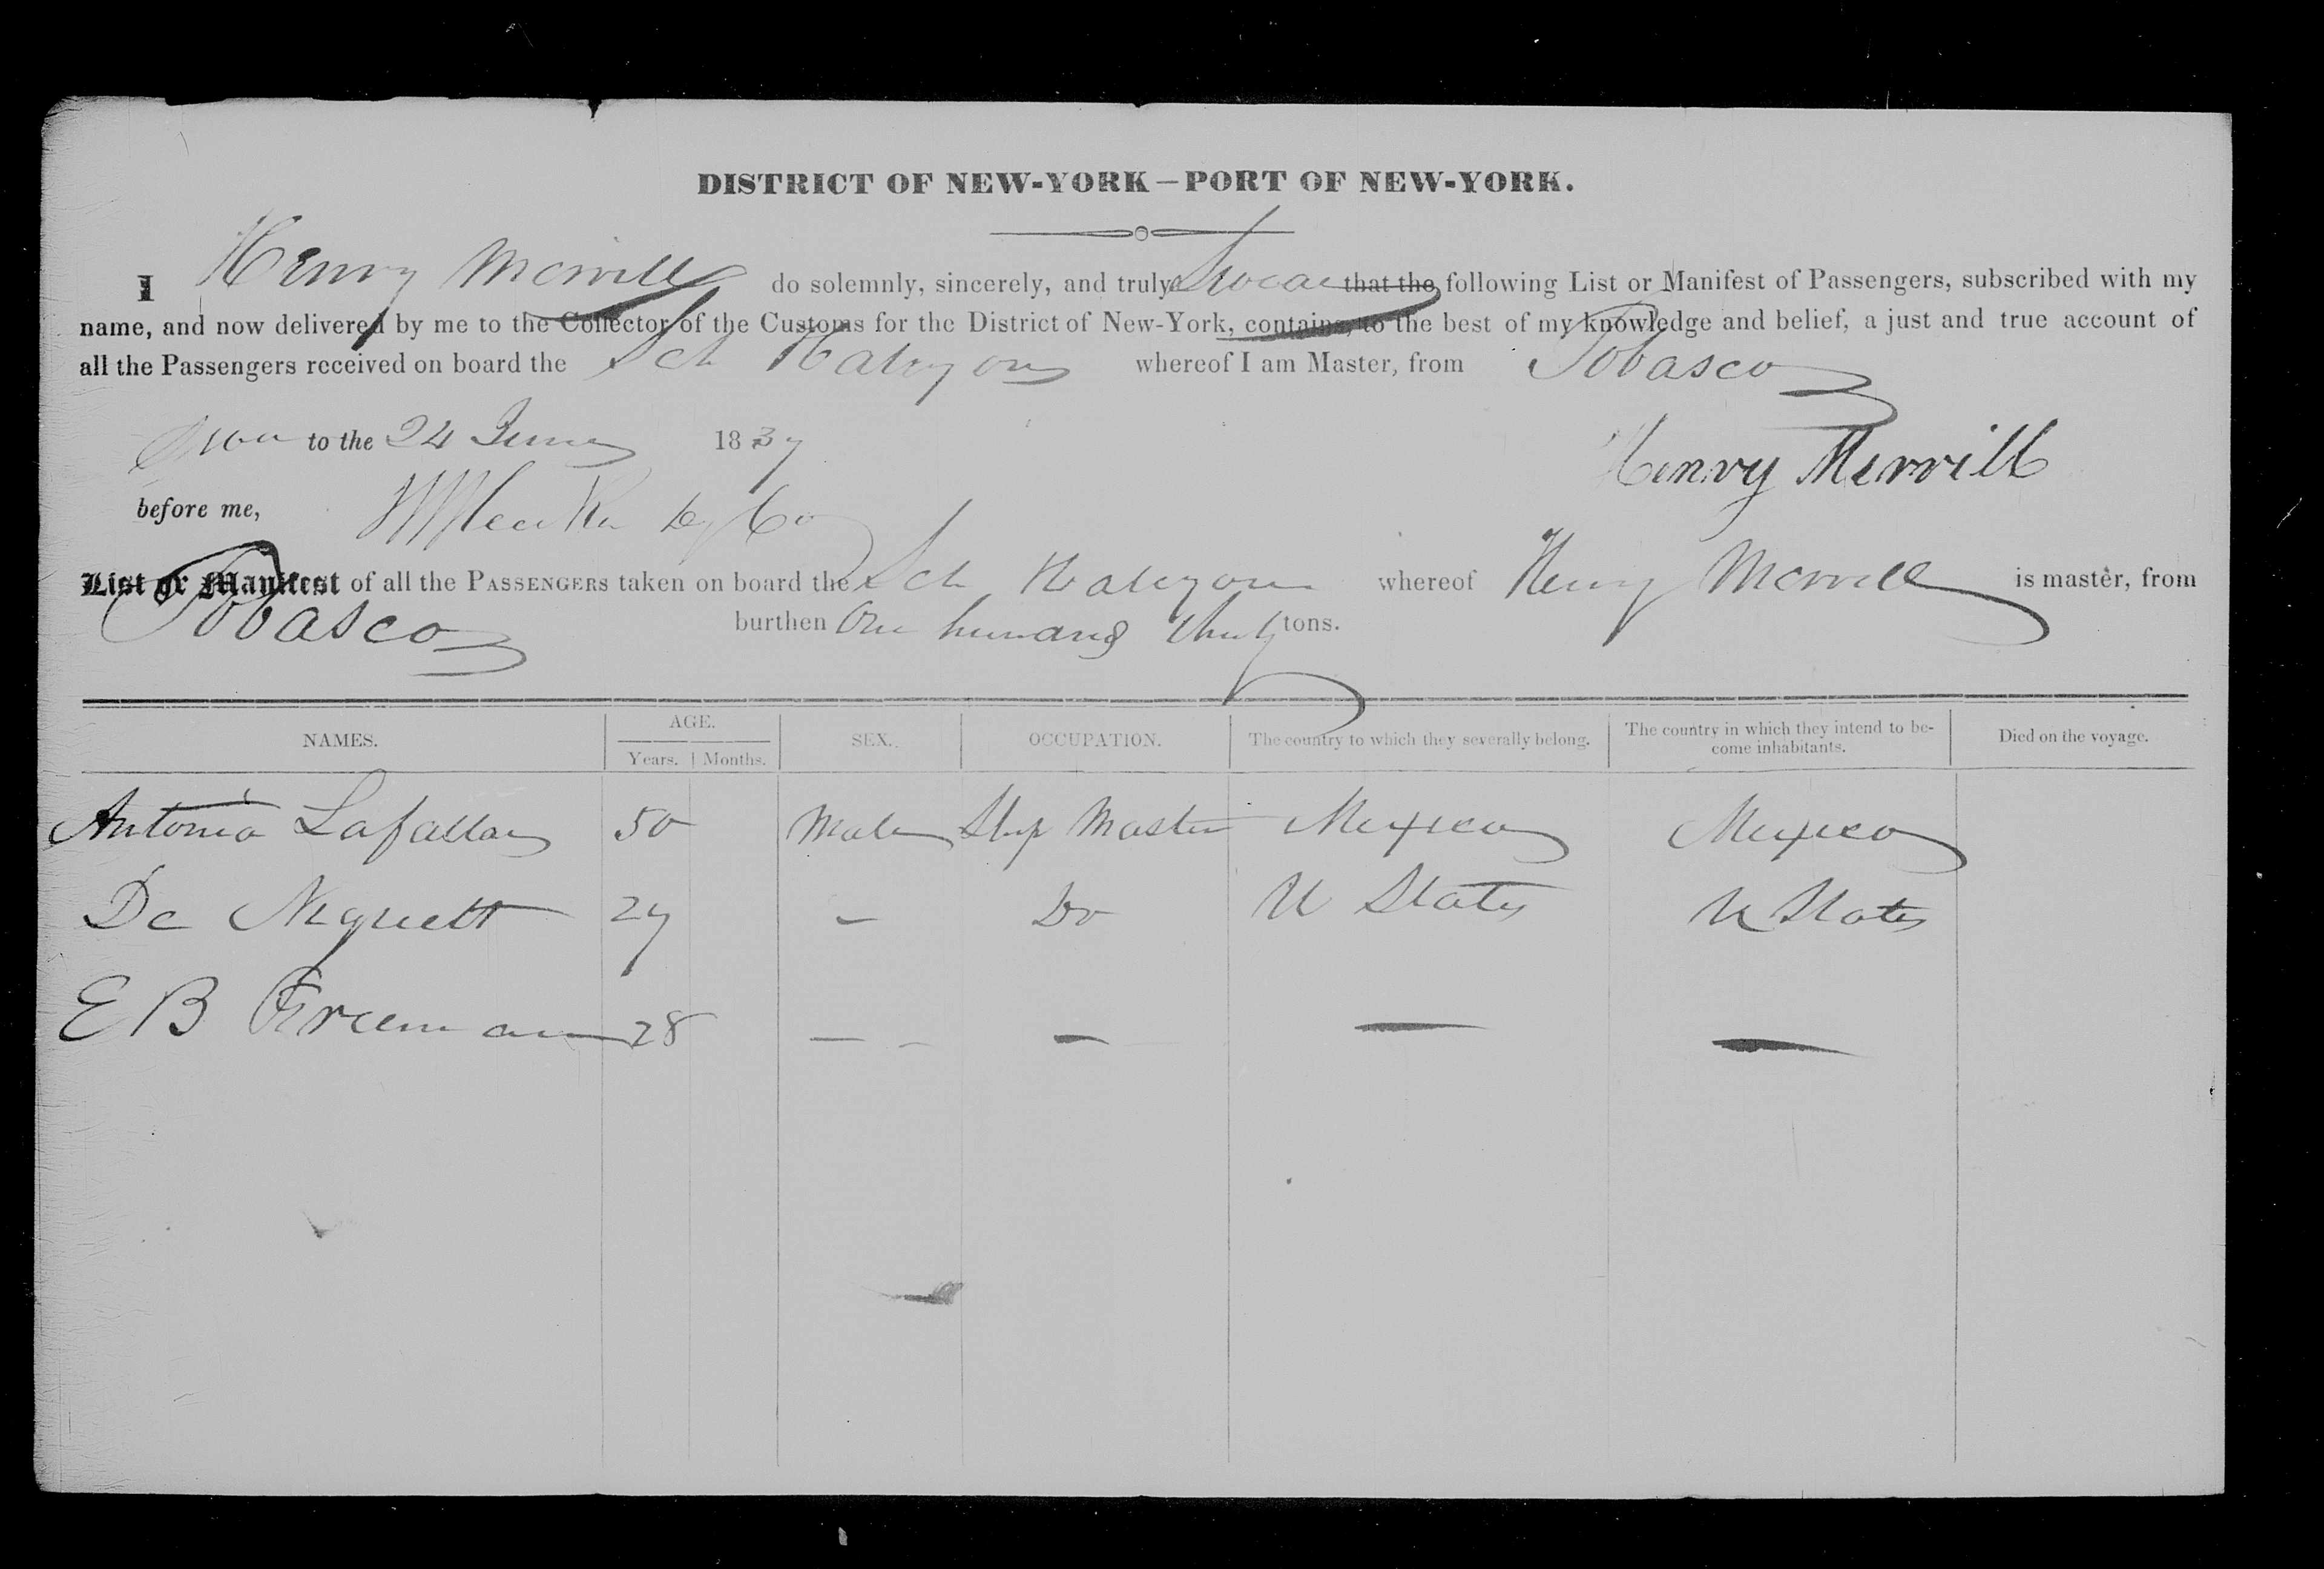 DISTRICT OF NEW-YORK—PORT OF NEW-YORK.
I Henry Merrill do solemnly, sincerely, and truly Swear that the following List or Manifest of Passengers, subscribed with my
name, and now delivered by me to the Collector of the Customs for the District of New-York, contains, to the best of my knowledge and belief, a just and true account of
all the Passengers received on board the Sch Halcyon whereof I am Master, from Tobasco
to the 24 June 1837
Henry Merrill
before me,
List or Manifest of all the PASSENGERS taken on board the Sch Halcyon whereof Henry Merrill is master, from
Tobasco burthen One hundred thirty tons.
NAMES. AGE. SEX. OCCUPATION. The country to which they severally belong. The country in which they intend to be-
come inhabitants. Died on the voyage.
Years. Months.
Antonia 50 Male Ship Master Mexico Mexico
De 27 - Do U States U States
E B Freeman 28 — - — — —